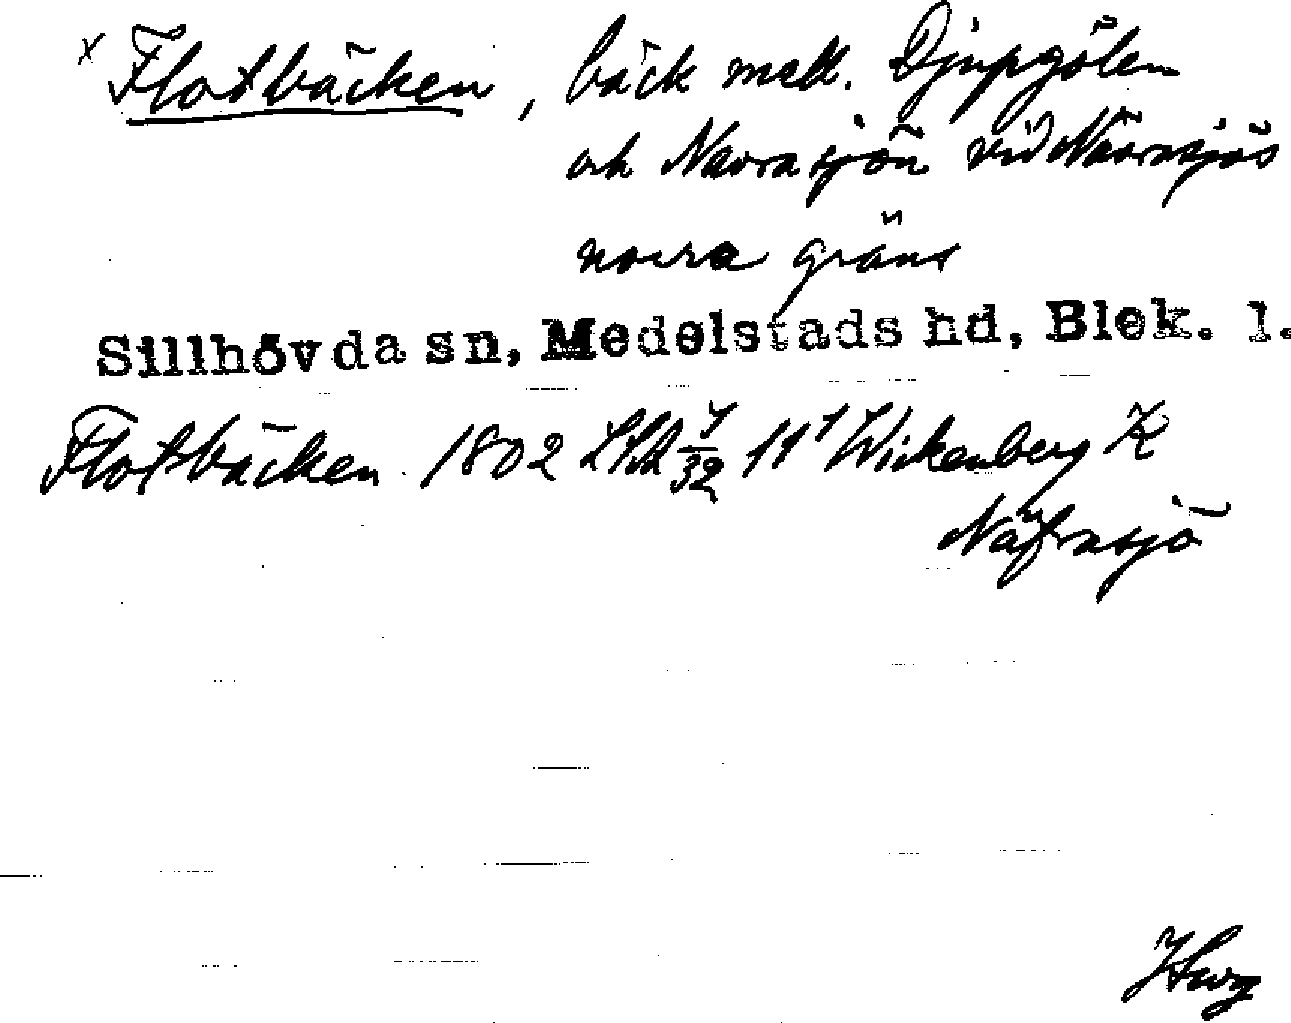 x Flotbäcken, bäck mell. Djupgölen
och Navrasjön vid Nävrasjös
norra gräns
Sillhövda sn, Medelstads hd, Blek. l.
Flotsbäcken 1802 1802 11 Wickenberg K
Näfrasjö